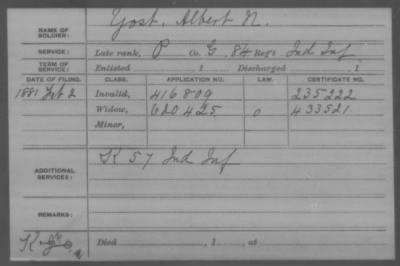 NAME OF SOLDIER: Yost, Albert N.
SERVICE: Late rank, P Co. G, 84 Reg't Ind Inf
TERM OF SERVICE: Enlisted , 1 Discharged , 1
DATE OF FILING. CLASS. APPLICATION NO. LAW. CERTIFICATE NO.
1881 Feb 2 Invalid, 416809 235222
Widow, 620425 0 433521
Minor,
ADDITIONAL SERVICES: K 57 Ind Inf
REMARKS:
Died , 1 , at